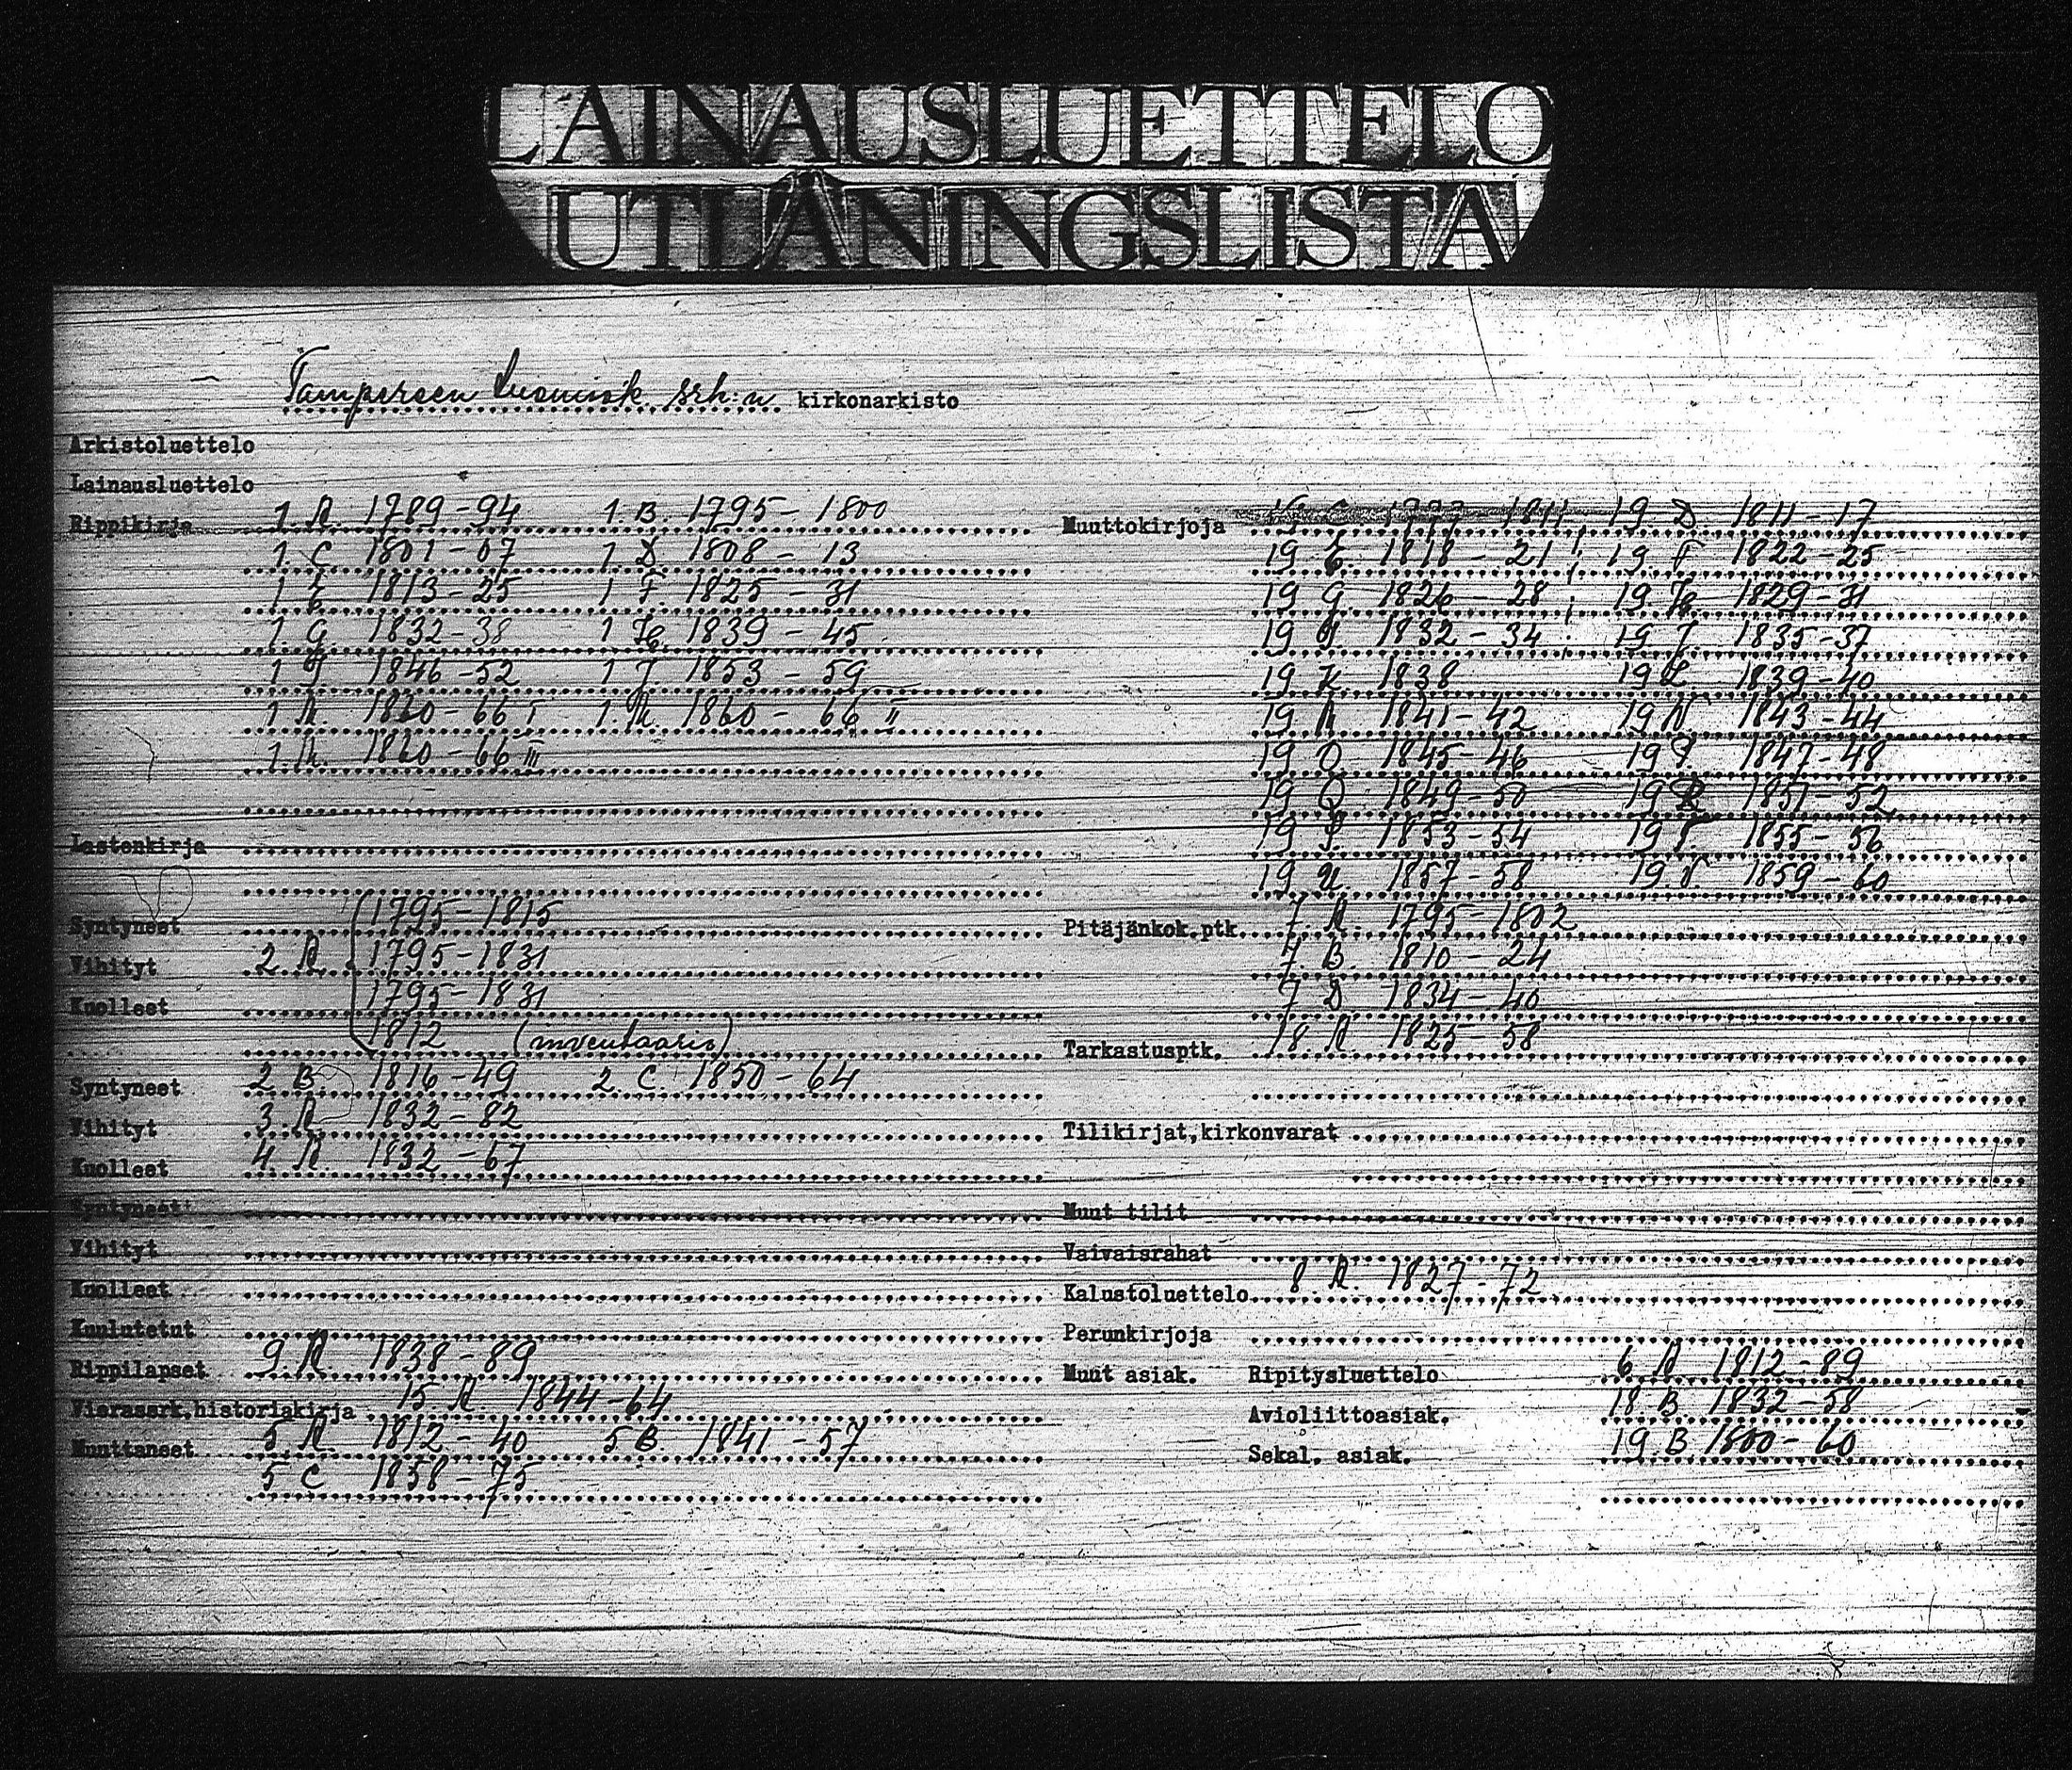 LAINAUSLUETTELO
UTLÅNINGSLISTA
Tampereen tuomiok. srh:n kirkonarkisto
Arkistoluettelo
Lainausluettelo
Rippikirja 1 A. 1789-94 1 B. 1795-1800
1 C. 1801-07 1 D. 1808-13
1 E 1813-25 1 F. 1825-31
1 G 1832-38 1 H. 1839-45
1 I 1846-52 1 J 1853-59
1 K. 1860-66 I 1. K. 1860-66 II
1. K. 1860-66 III
Lastenkirja
Syntyneet 1795-1815
Vihityt 2. A. 1795-1831
Kuolleet 1795-1831
1812 (inventaario)
Syntyneet 2 B. 1816-49 2. C. 1850-64
Vihityt 3. A. 1832-82
Kuolleet 4. A. 1832-67
Syntyneet
Vihityt
Kuolleet
Kuulutetut
Rippilapset 9. A. 1838-89
Vierassrk, historiakirja 15. A. 1844-64
Muuttaneet 5. A. 1812-40 5 B. 1841-57
5 C 1858-75
Muuttokirjoja 1811, 19 D. 1811-17
19 E. 1818-21; 19 F 1822-25
19 G. 1826-28; 19 H. 1829-31
19 I 1832-34; 19 J. 1835-37
19 K 1838 19 L 1839-40
19 M 1841-42 19 N 1843-44
19 O 1845-46 19 P 1847-48
19 Q 1849-50 19 R 1851-52
19 S. 1853-54 19 T. 1855-56
19 U. 1857-58 19. V. 1859-60
Pitäjänkok.ptk. 7. A. 1795-1802
7 B. 1810-24
7 D 1834-40
Tarkastusptk. 18. A 1825-58
Tilikirjat, kirkonvarat
Muut tilit
Vaivaisrahat
Kalustoluettelo 8 A. 1827-72
Perunkirjoja
Muut asiak. Ripitysluettelo 6 A 1812-89
Avioliittoasiak. 18 B 1832-58
Sekal. asiak. 19. B 1800-60